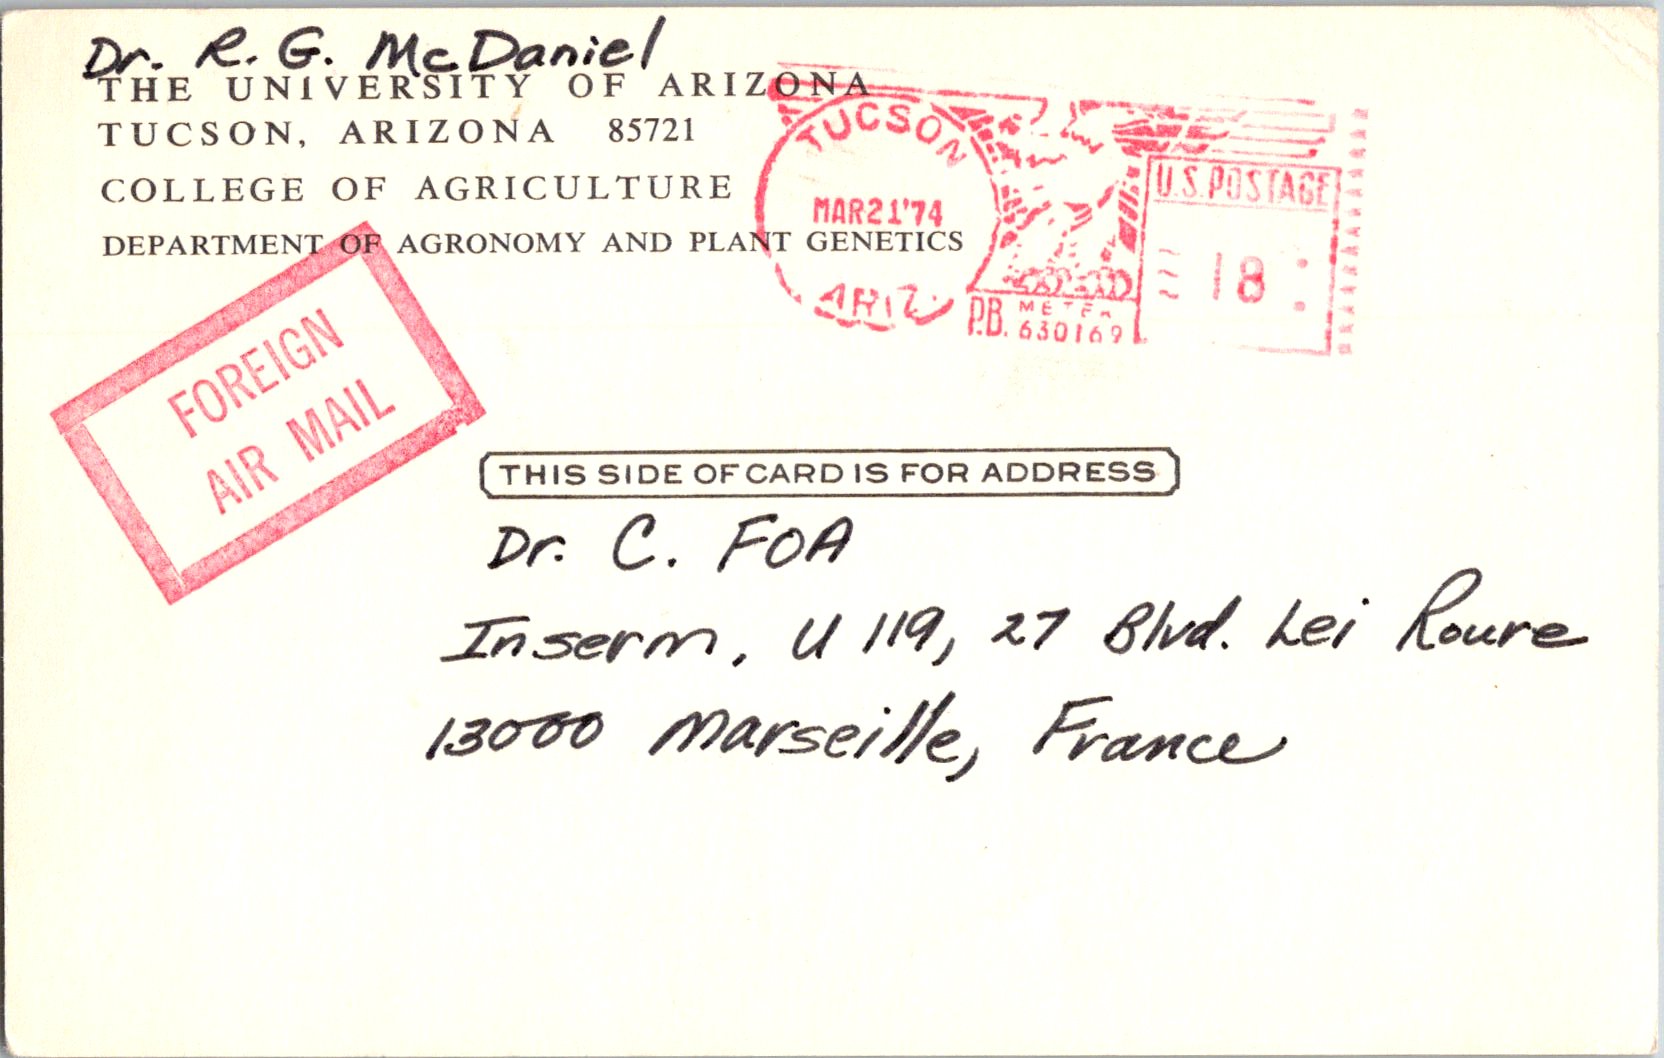 Dr. R. G. McDaniel
THE UNIVERSITY OF ARIZONA
TUCSON, ARIZONA 85721
COLLEGE OF AGRICULTURE
DEPARTMENT OF AGRONOMY AND PLANT GENETICS
TUCSON
MAR21'74
ARIZ.
P.B. METER
630169
U.S. POSTAGE
18
FOREIGN
AIR MAIL
THIS SIDE OF CARD IS FOR ADDRESS
Dr. C. FOA
Inserm, U 119, 27 Blvd. Lei Roure
13000 Marseille, France